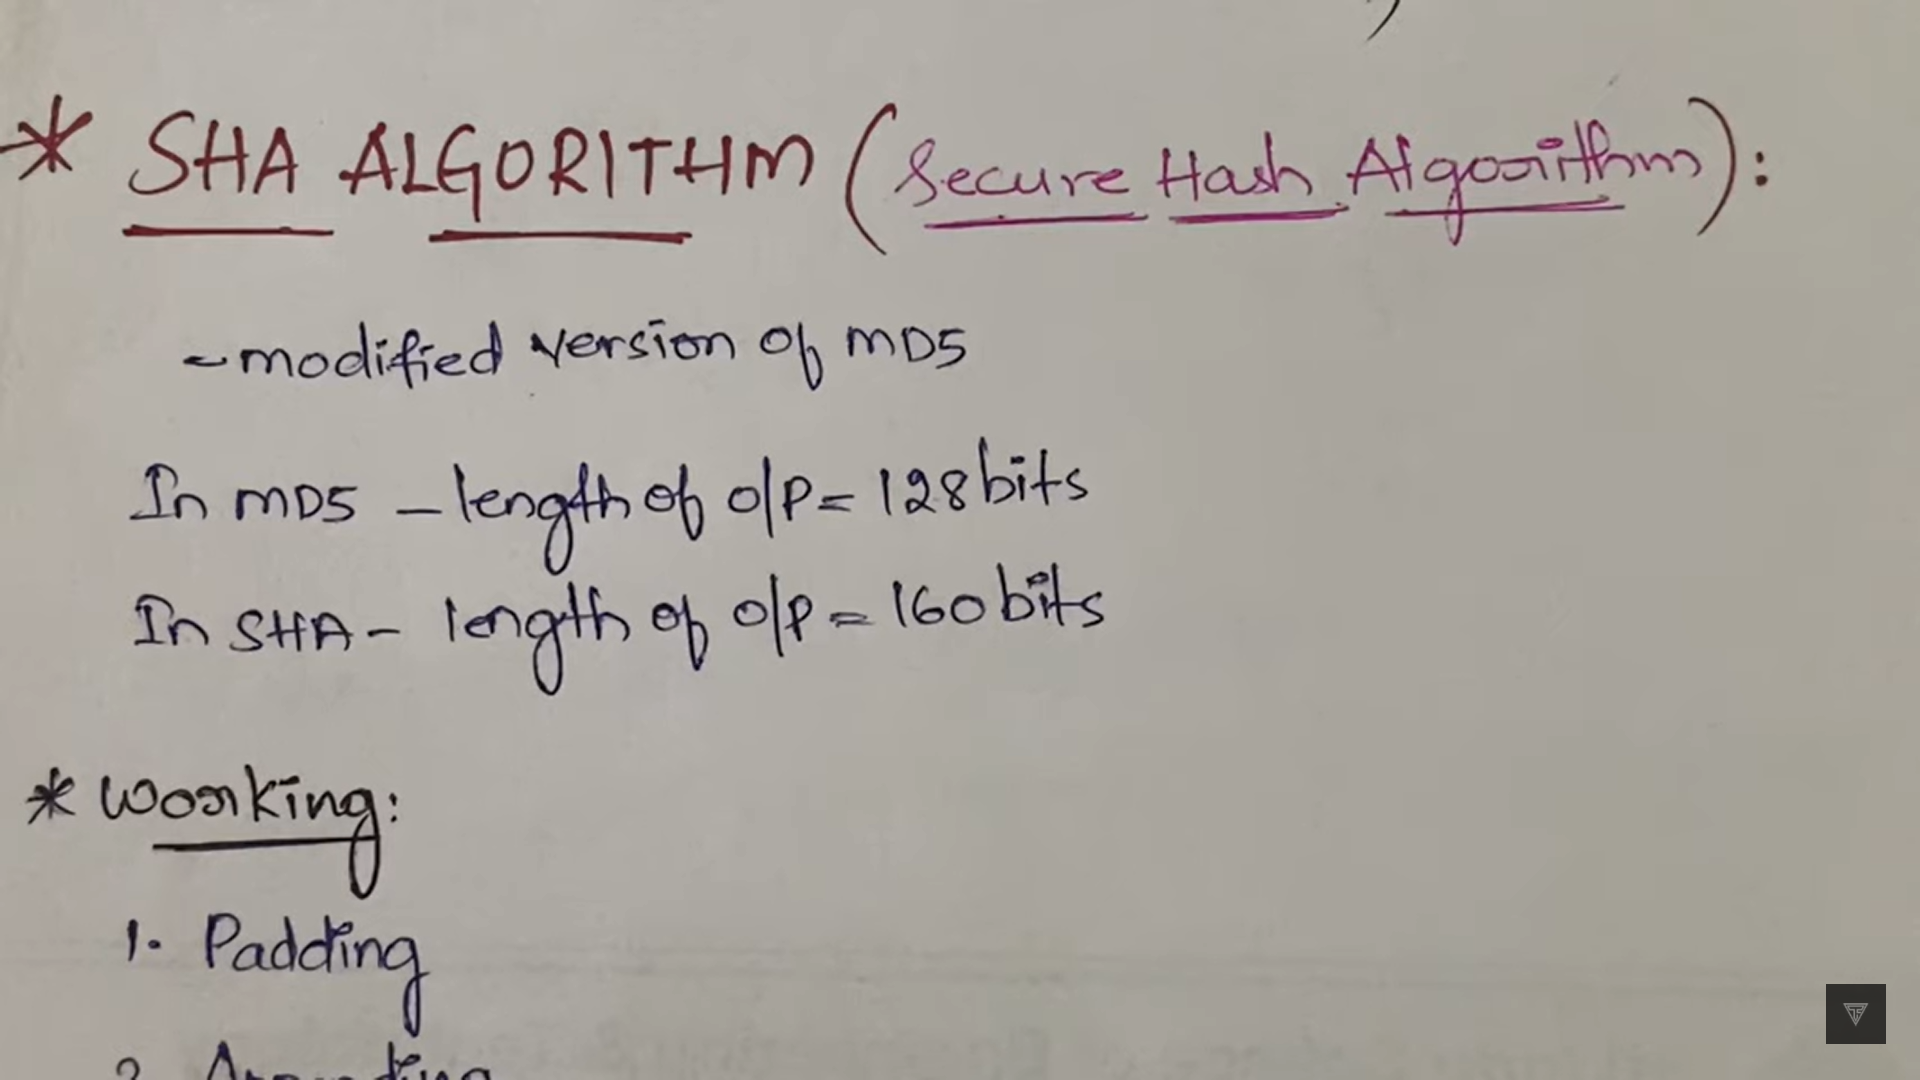 * SHA ALGORITHM (Secure Hash Algorithm):
- modified version of MD5
In MD5 - length of o/p = 128 bits
In SHA - length of o/p = 160 bits
* Working:
1. Padding
2.